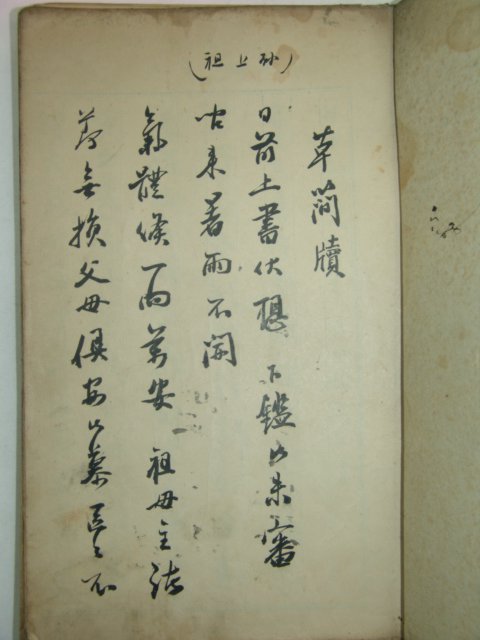 (祖上孫)
草簡牘
日前上書伏想 下鑑 未審
來暑雨不開
氣體候一向萬安 祖母主
無損父母俱安 慕 不